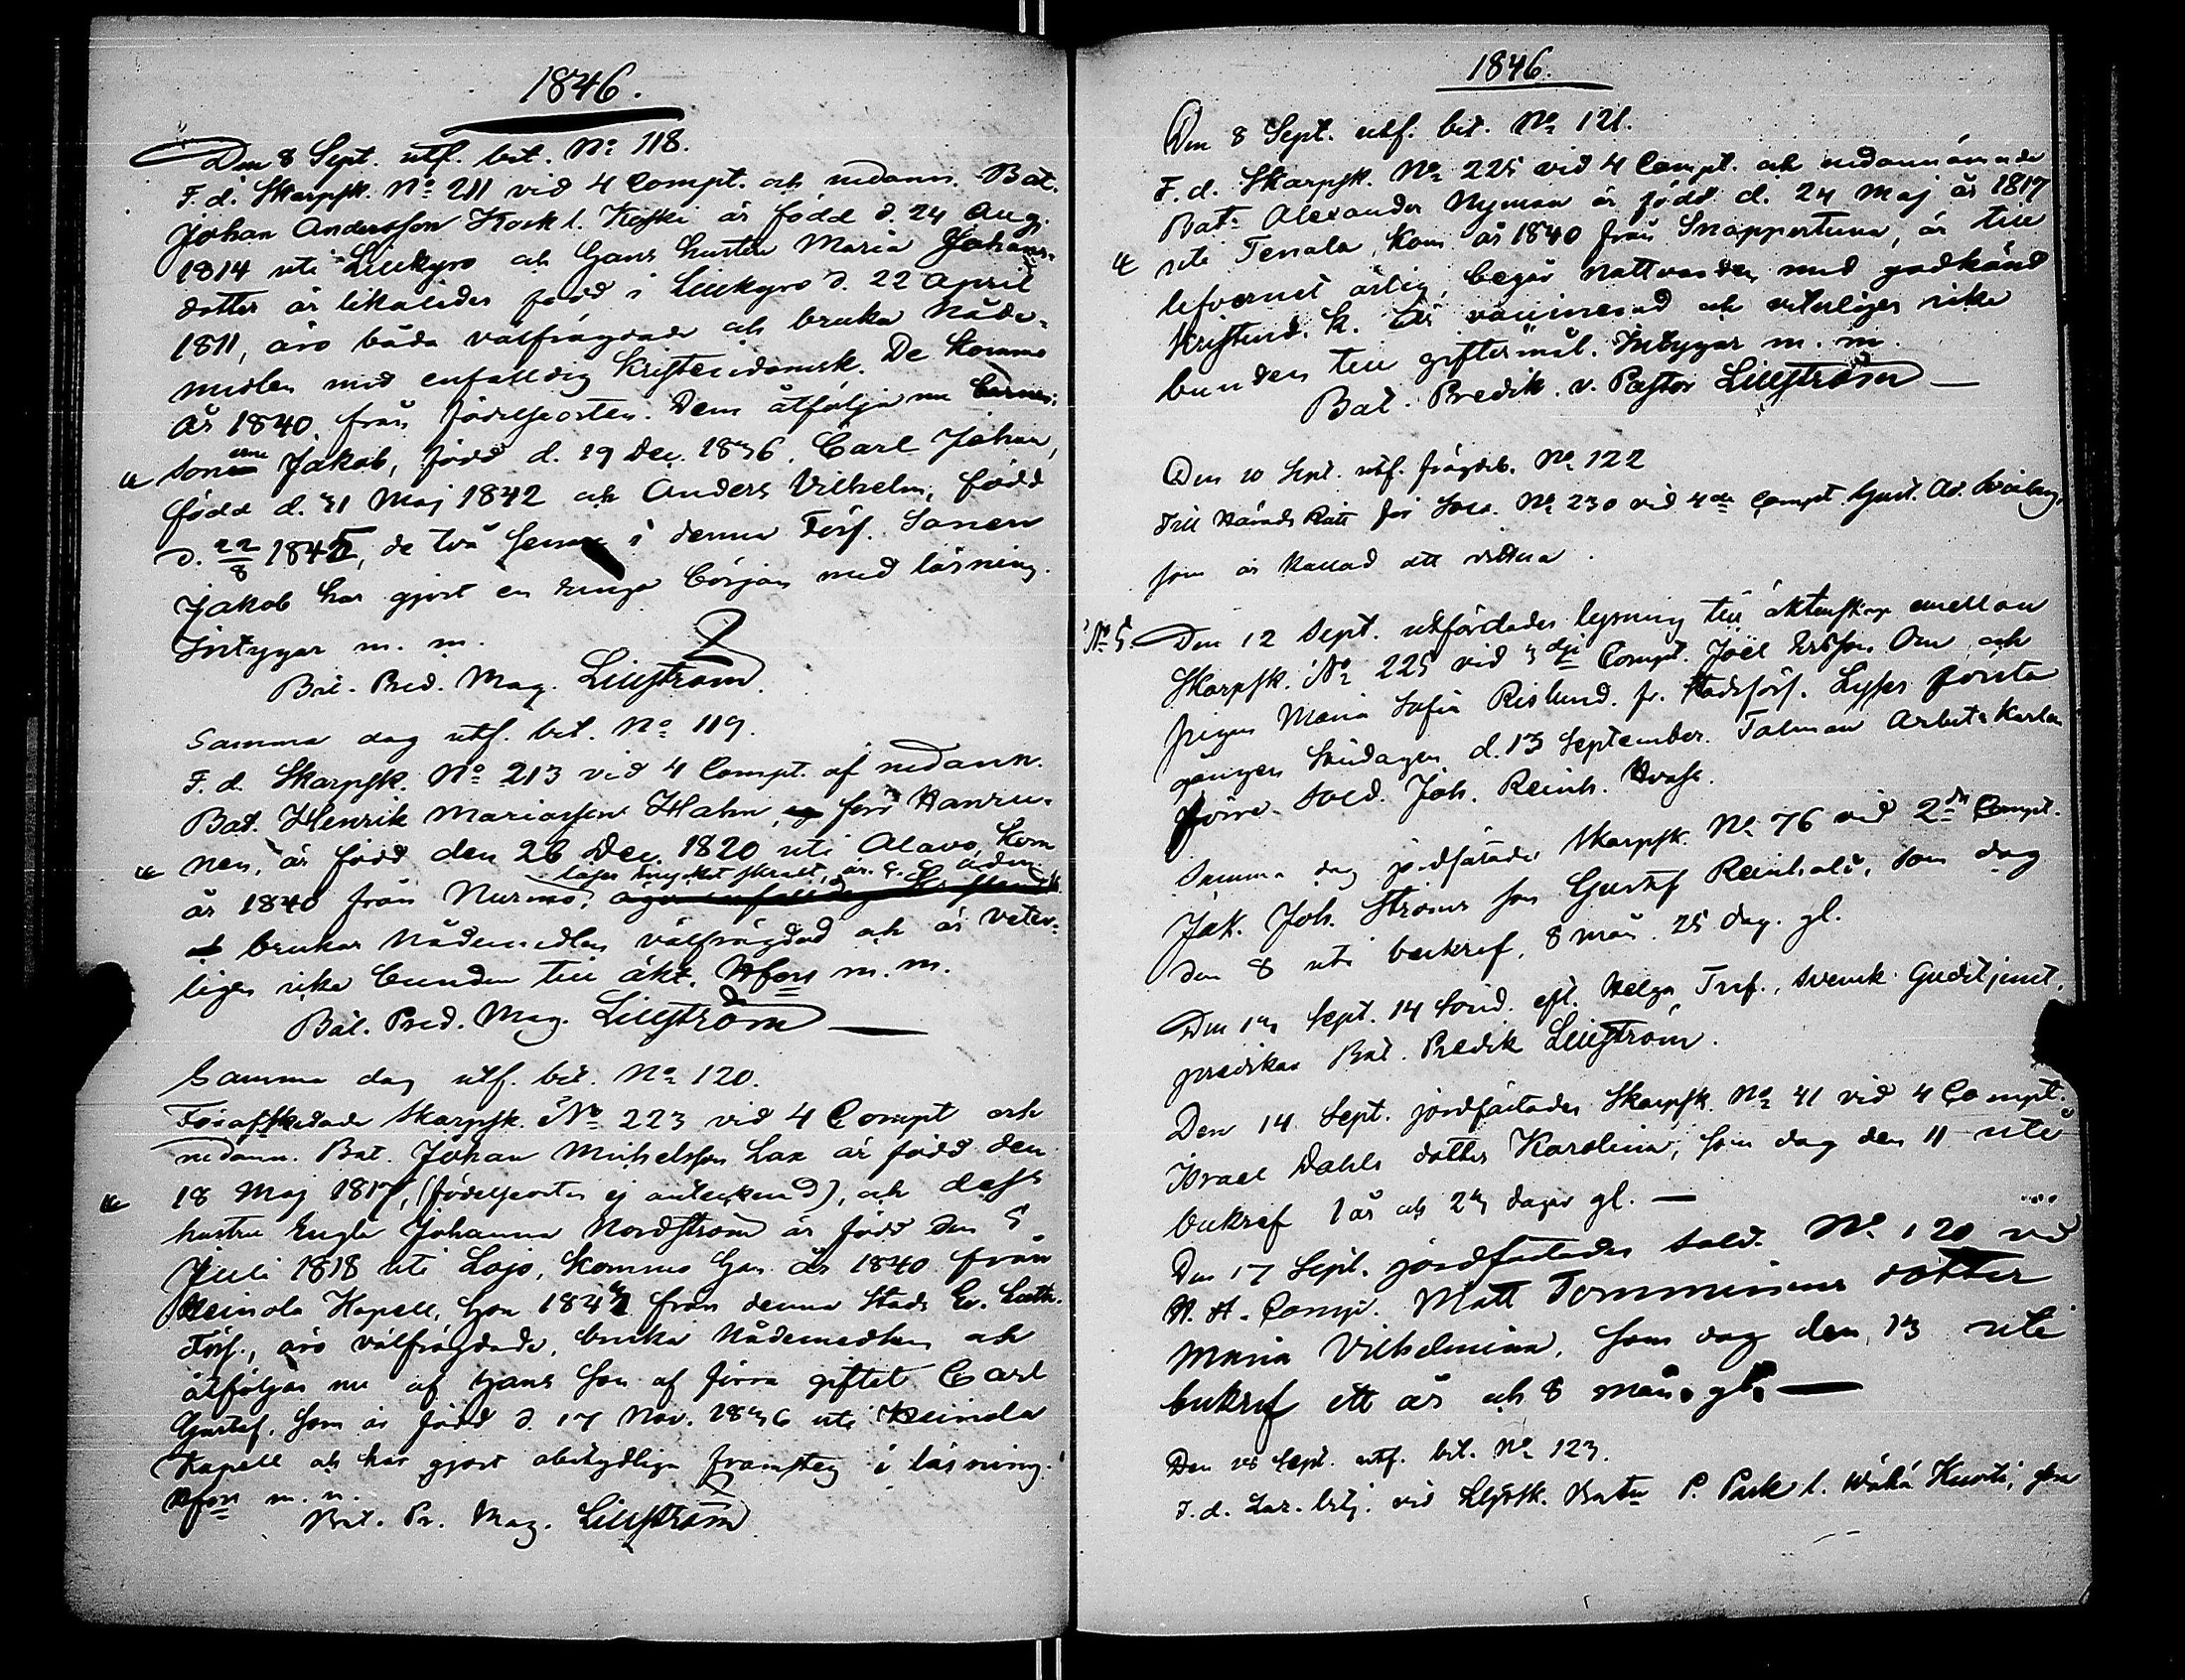 1846.
Den 8 Sept. utf. bet. No 118.
F. d. Skarpsk. No 211 vid 4 Compt. och nedann. Bat.
Johan Andersson Kosk l. Koski är född d. 24 Aug.
1814 uti Lillkyro och hans hustru Maria Johans-
dotter är likaledes född i Lillkyro d. 22 April
1811, äro båda välfrägdade och bruka Nåde-
medlen med enfalldig Kristendomsk. De kommo
år 1840 från födelseorten. Dem åtfölja nu
sönerne Jakob, född d. 19 Dec. 1836, Carl Johan,
född d. 31 Maj 1842 och Anders Vilhelm, född
d. 22/8 1845, de två i denna Förs. Sonen
Jakob har gjort en ringa början med läsning.
Intygar m. m.
Bat. Pred. Mag. Lillström.
Samma dag utf. bet. No 119.
F. d. Skarpsk. No 213 vid 4 Compt. af nedann.
Bat. Henrik Mariasson Hahn, förr Hanni-
nen, är född den 26 Dec. 1820 uti Alavo, kom
läser mycket skralt, är e. Hs adm.
år 1840 från Nurmo,
brukar Nådemedlen välfrägdad och är veter-
ligen icke bunden till äkt. Hfors m. m.
Bat. Pred. Mag. Lillström
Samma dag utf. bet. No 120.
Förafskedade Skarpsk. No 223 vid 4 Compt och
nedann. Bat. Johan Michelsson Lax är född den
18 Maj 1817, (födelseorten ej antecknad), och dess
hustru Engla Johanna Nordström är född den 5
Juli 1818 uti Lojo, kommo han år 1840 från
Heinola Kapell, hon 184 från denna Stads Ev. Luth.
Förs., äro välfrägdade, bruka Nådemedlen och
åtföljas nu af hans son af förra giftet Carl
Gustaf, som är född d. 17 Nov. 1836 uti Heinola
Kapell och har gjort obetydliga framsteg i läsning.
Hfors m. m.
Bat. Pr. Mag. Lillström
1846.
Den 8 Sept. utf. bet. No 121.
F. d. Skarpsk. No 225 vid 4 Compt. och nedannämnde
Bat. Alexander Nyman är född d. 24 Maj år 1817
uti Tenala, kom år 1840 från Snappertuna, är till
lefvernet ärlig, begår Nattvarden med godkänd
Kristend. k. Är vaccinerad och veterligen icke
bunden till giftermål. Intygar m. m.
Bat. Predik. v. Pastor Lillström
Den 10 Sept. utf. frägdeb. No 122
Till Härads Rätt för Sold. No 230 vid 4de Compt. Gust. Ad.
som är kallad att vittna.
No 5. Den 12 Sept. utfärdades lysning till äktenskap emellan
Skarpsk. No 225 vid 3dje Compt. Joel Ersson Orn och
pigan Maria Sofia Rislund fr. Stadsförs. Lyses första
gången Söndagen d. 13 September. Talman Arbets Karlen
förre Sold. Joh. Reinh.
Samma dag jordfästades Skarpsk. No 76 vid 2dra Compt.
Jak. Joh. Ströms son Gustaf Reinhold, som dog
den 8 uti bukref, 8 mån. 25 dag. gl.
Den 13 Sept. 14 Sönd. eft. Helga Tref., svensk Gudstjenst.
predikar Bat. Predik Lillström.
Den 14 Sept. jordfästades Skarpsk. No 41 vid 4 Compt.
Israel Dahls dotter Karolina, som dog den 11 uti
bukref 1 år och 23 dagar gl.
Den 17 Sept. jordfästades Sold. No 120 vid
Comp. Matt Tomminens dotter
Maria Vilhelmina, som dog den 13 uti
bukref ett år och 8 mån. gl.
Den 18 Sept. utf. bet. No 123.
F. d. Laz. betj. vid P. Pask l.